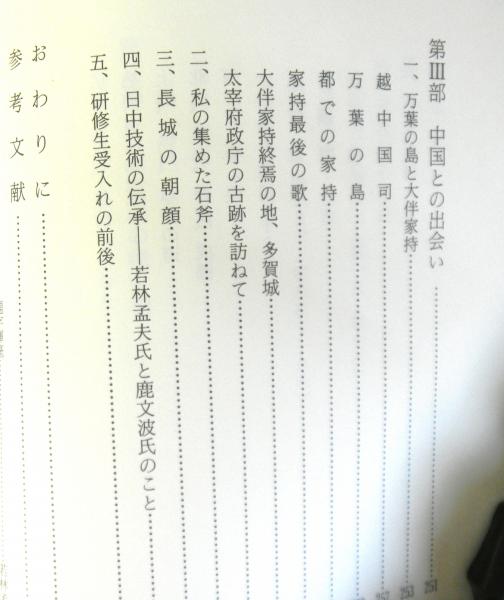 第Ⅲ部　中国との出会い……251
一、万葉の島と大伴家持……253
越中国司……
万葉の島……
都での家持……
家持最後の歌……
大伴家持終焉の地、多賀城……
太宰府政庁の古跡を訪ねて……
二、私の集めた石斧……
三、長城の朝顔……
四、日中技術の伝承——若林孟夫氏と鹿文波氏のこと……
五、研修生受入れの前後……
おわりに……
参考文献……